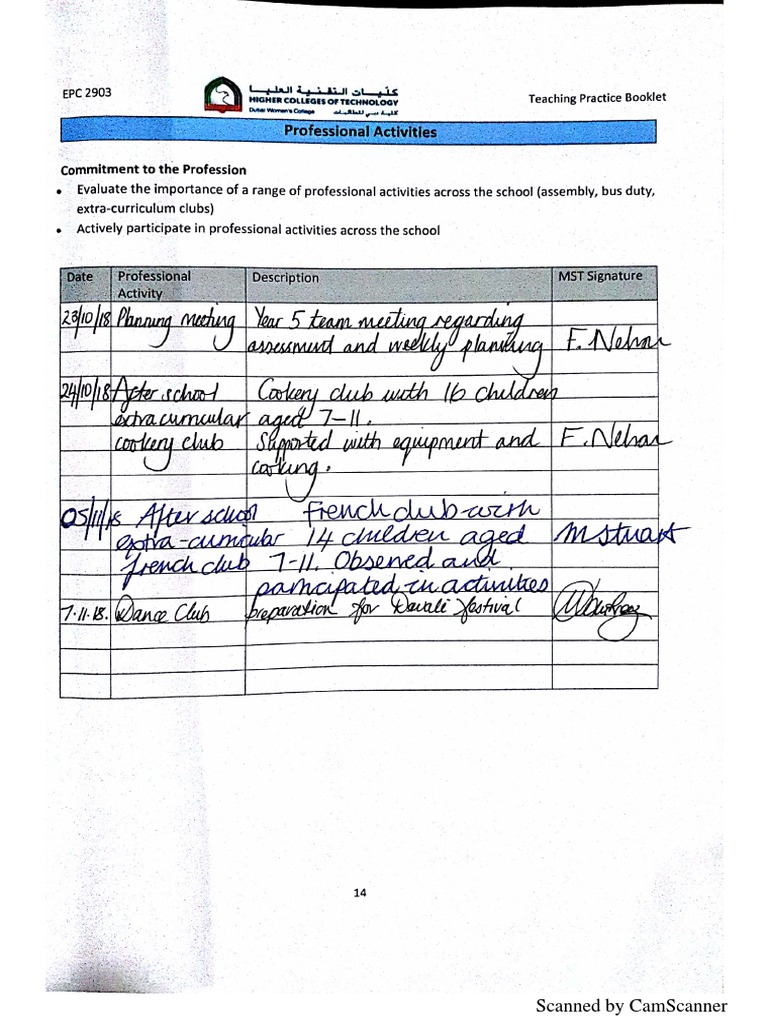 EPC 2903
كليات التقنية العليا
HIGHER COLLEGES OF TECHNOLOGY
Dubai Women's College كلية دبي للطالبات
Teaching Practice Booklet
Professional Activities
Commitment to the Profession
• Evaluate the importance of a range of professional activities across the school (assembly, bus duty,
extra-curriculum clubs)
• Actively participate in professional activities across the school
Date Professional Description MST Signature
Activity
23/10/18 Planning Meeting Year 5 team meeting regarding
assessment and weekly planning F. Nehar
24/10/18 After school Cookery club with 16 children
extra curricular aged 7-11.
cookery club Supported with equipment and F. Nehar
cooking.
05/11/18 After school French club with
extra-curricular 14 children aged M Stuart
french club 7-11. Observed and
participated in activities
7.11.18. Dance Club preparation for Davali festival
14
Scanned by CamScanner